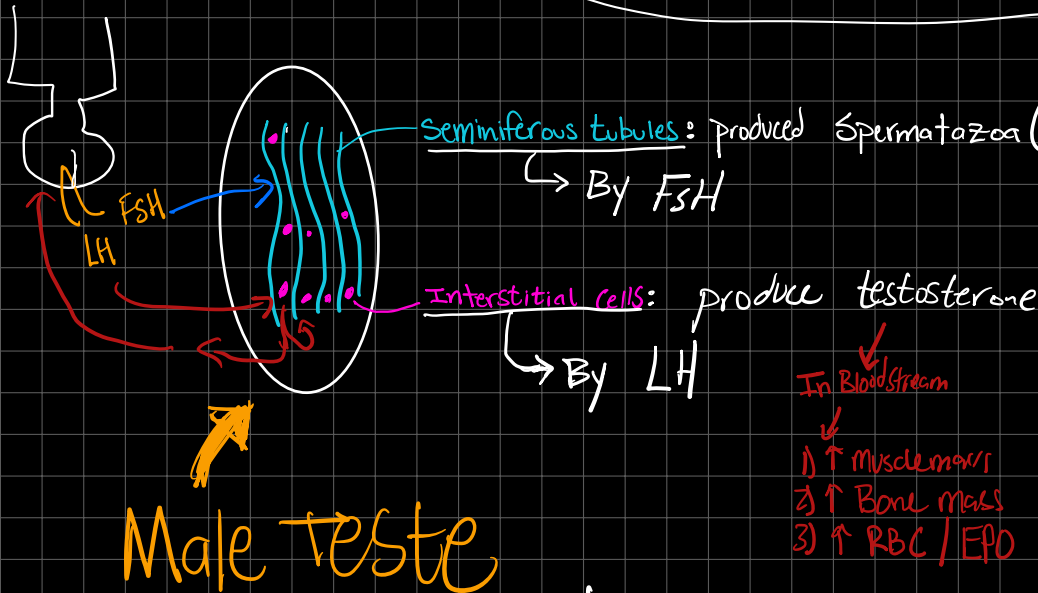 Seminiferous tubules: produced Spermatazoa (
By FSH
FSH
LH
Interstitial cells: produce testosterone
By LH
In Bloodstream
1) ↑ Muscle mass
2) ↑ Bone mass
3) ↑ RBC / EPO
Male Teste